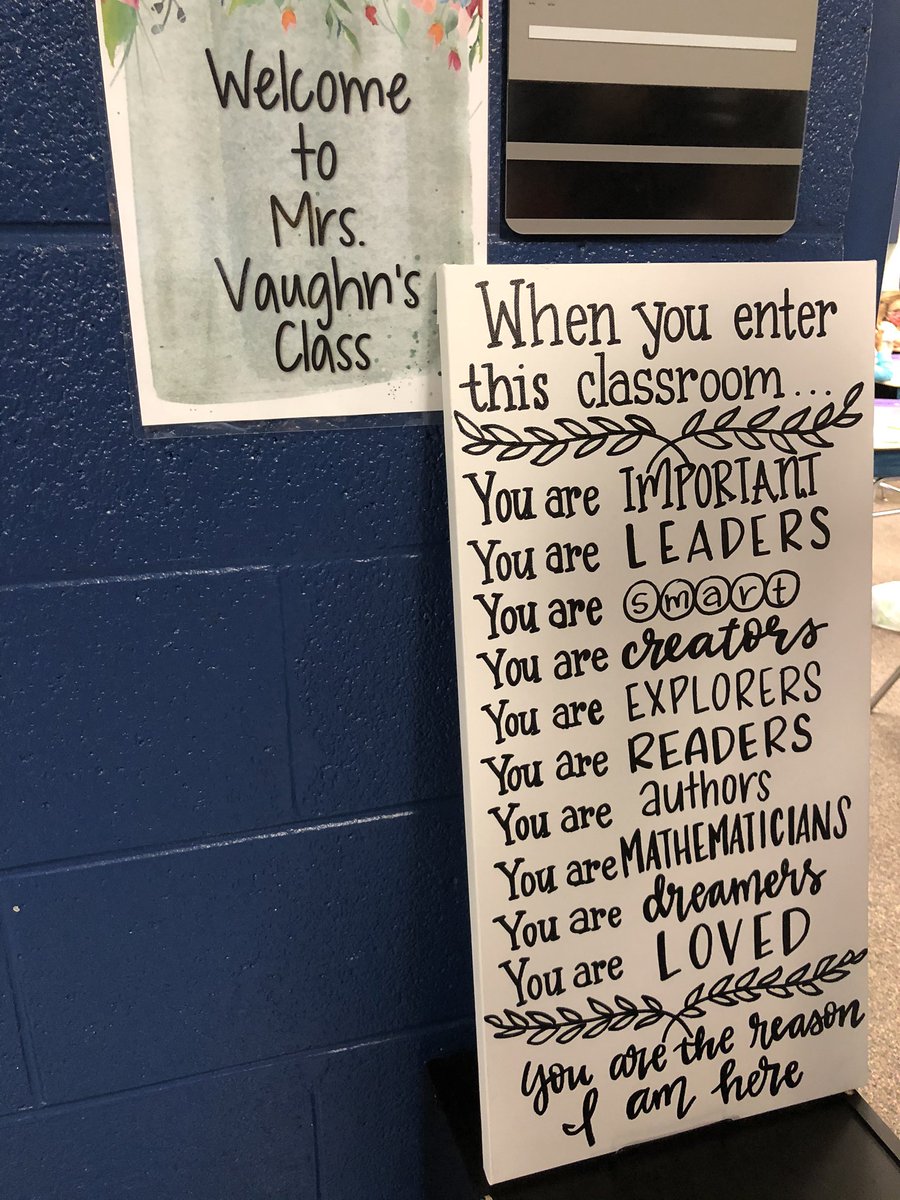 Welcome
to
Mrs.
Vaughn's
Class
When you enter
this classroom...
You are IMPORTANT
You are LEADERS
You are smart
You are creators
You are EXPLORERS
You are READERS
You are authors
You are MATHEMATICIANS
You are dreamers
You are LOVED
you are the reason
I am here